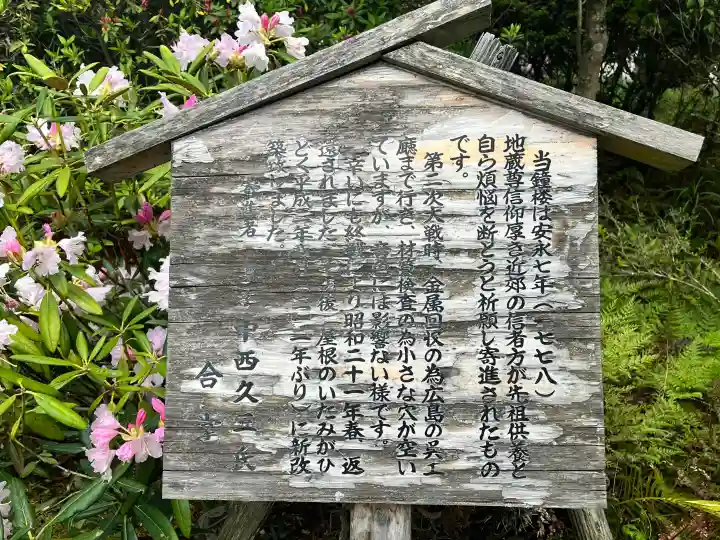 当鐘楼は安永七年(一七七八)
地蔵尊信仰厚き近郊の信者方が先祖供養と
自ら煩悩を断とうと祈願し寄進されたもの
です。
第二次大戦時、金属回収の為広島の呉工
廠まで行き、材質検査の為小さな穴が空い
ていますが、音には影響ない様です。
幸いにも終戦により昭和二十一年春、返
還されました。その後、屋根のいたみがひ
どく平成二年 二年ぶり)に新改
築されました。
中西久 兵
合